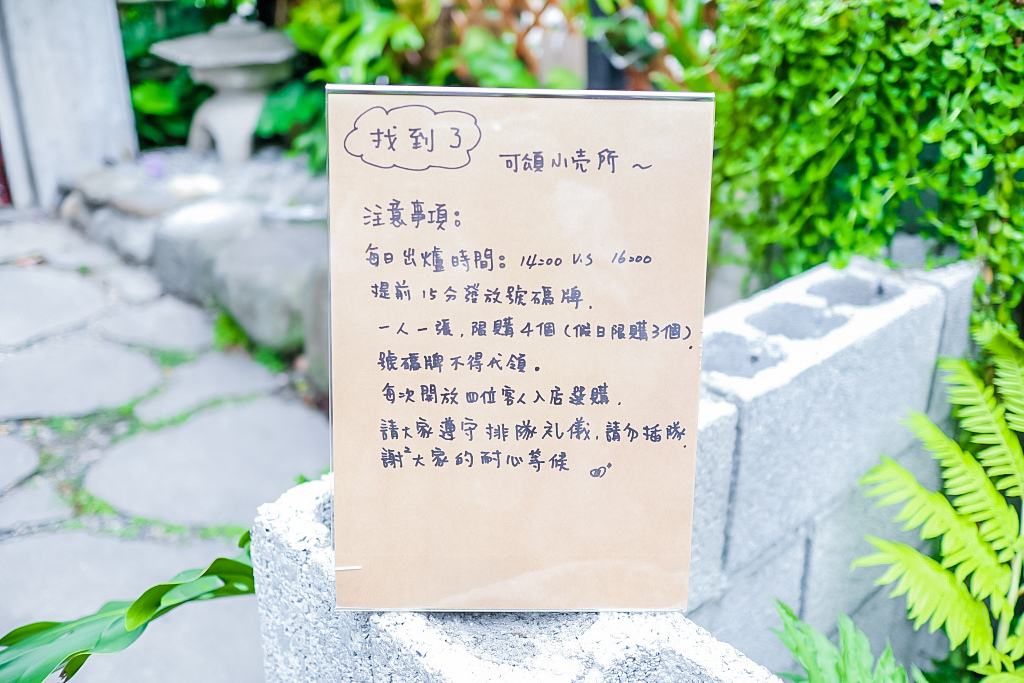 找到了
可頌小売所~
注意事項:
每日出爐時間: 14:00 V.S 16:00
提前15分發放號碼牌.
一人一張, 限購4個(假日限購3個).
號碼牌不得代領。
每次開放四位客人入店選購.
請大家遵守排隊礼儀, 請勿插隊.
謝²大家的耐心等候